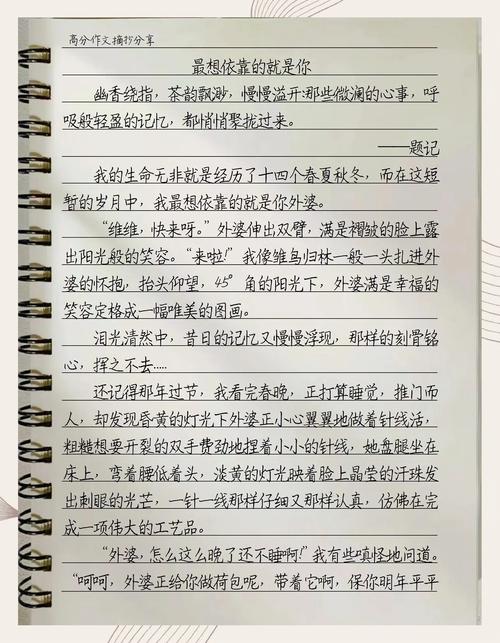 高分作文摘抄分享
最想依靠的就是你
幽香绕指，茶韵飘渺，慢慢溢开那些微澜的心事，呼
吸般轻盈的记忆，都悄悄聚拢过来。
——题记
我的生命无非就是经历了十四个春夏秋冬，而在这短
暂的岁月中，我最想依靠的就是你外婆。
“维维，快来呀。”外婆伸出双臂，满是褶皱的脸上露
出阳光般的笑容。“来啦！”我像雏鸟归林一般一头扎进外
婆的怀抱，抬头仰望，45°角的阳光下，外婆满是幸福的
笑容定格成一幅唯美的图画。
泪光清然中，昔日的记忆又慢慢浮现，那样的刻骨铭
心，挥之不去.....
还记得那年过节，我看完春晚，正打算睡觉，推门而
人，却发现昏黄的灯光下外婆正小心翼翼地做着针线活，
粗糙想要开裂的双手费劲地捏着小小的针线，她盘腿坐在
床上，弯着腰低着头，淡黄的灯光映着脸上晶莹的汗珠发
出刺眼的光芒，一针一线那样仔细又那样认真，仿佛在完
成一项伟大的工艺品。
“外婆，怎么这么晚了还不睡啊!”我有些嗔怪地问道。
“呵呵，外婆正给你做荷包呢，带着它啊，保你明年平平